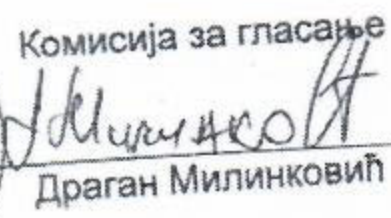 Комисија за гласање
Драган Милинковић